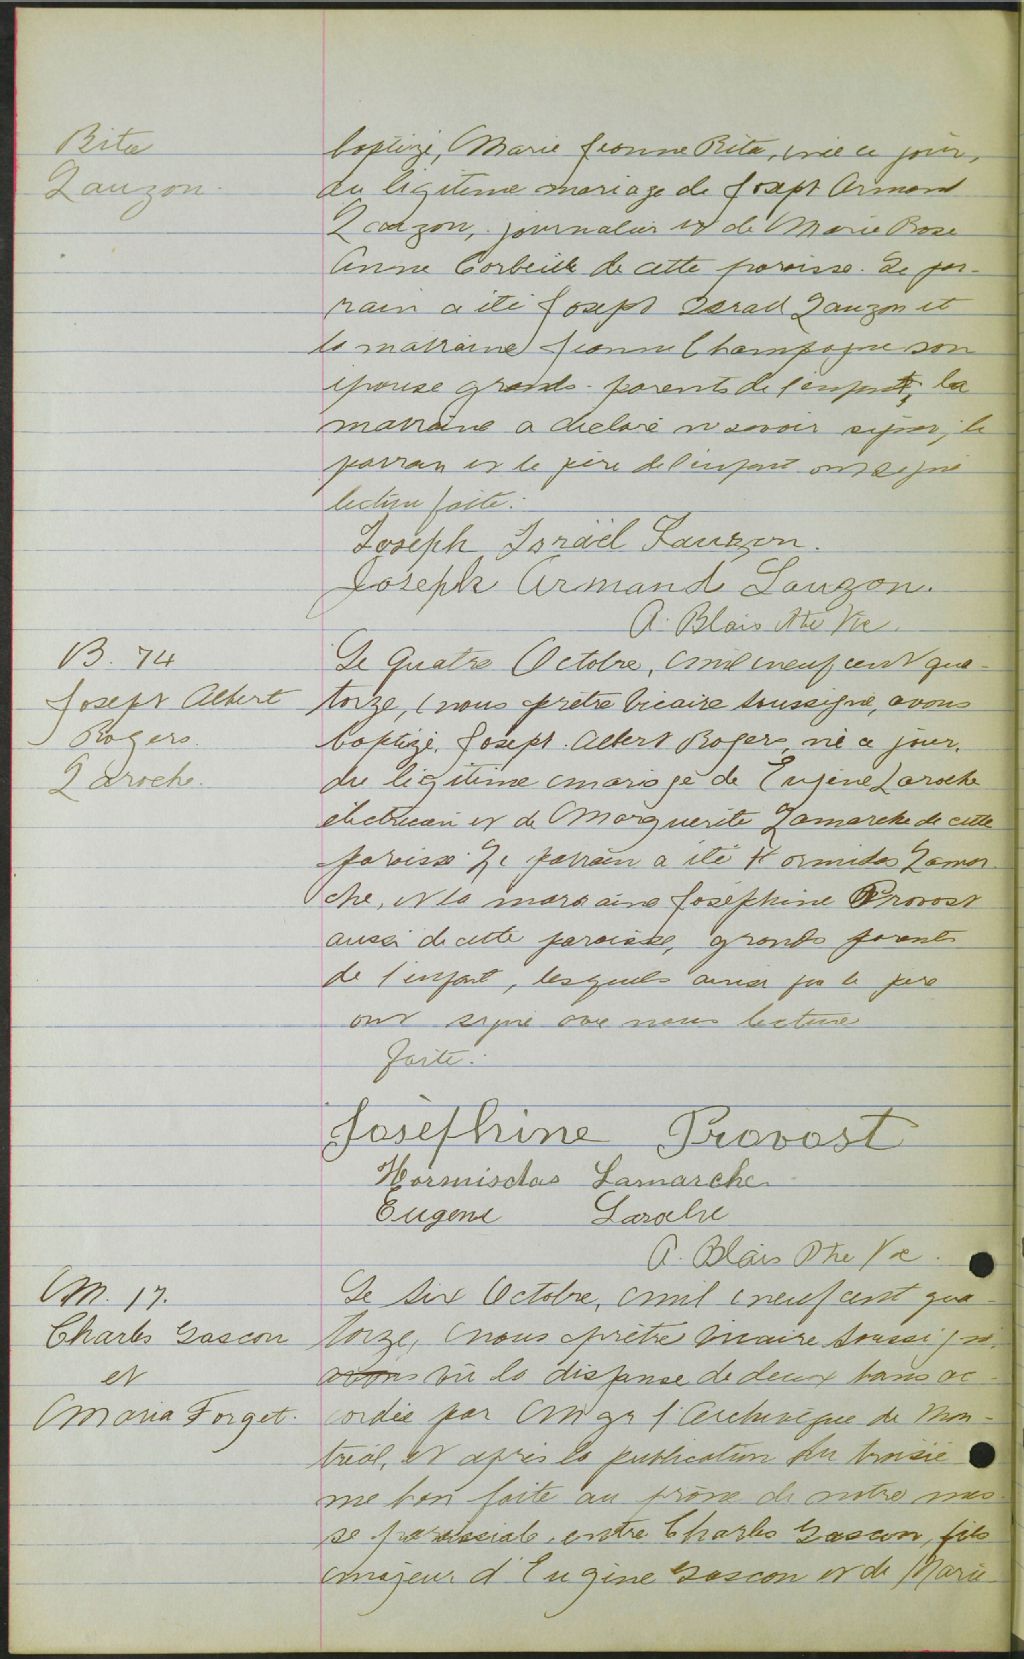 Rita
Lauzon.
baptizé, Marie Jeanne Rita, née ce jour,
du légitime mariage de Joseph Armand
Lauzon, journalier et de Marie Rose
Anna Corbeille de cette paroisse. Le par-
rain a été Joseph Israel Lauzon et
la marraine Jeanne Champagne son
épouse grands-parents de l'enfant, la
marraine a déclaré ne savoir signer, le
parrain et le père de l'enfant ont signé
lecture faite.
Joseph Israël Lauzon.
Joseph Armand Lauzon.
A. Blais Ptre Vic.
B. 74
Joseph Albert
Rogers
Laroche.
Le quatre Octobre, mil neuf cent qua-
torze, nous prêtre vicaire soussigné, avons
baptizé, Joseph Albert Rogers, né ce jour,
du légitime mariage de Eugène Laroche
électricien et de Marguerite Lamarche de cette
paroisse. Le parrain a été Hormidas Lamar-
che, et la marraine Joséphine Provost
aussi de cette paroisse, grands parents
de l'enfant, lesquels ainsi que le père
ont signé avec nous lecture
faite.
Josèphine Provost
Hormisdas Lamarche
Eugene Laroche
A. Blais Ptre Vic.
M. 17.
Charles Gascon
et
Maria Forget.
Le six Octobre, mil neuf cent qua-
torze, nous prêtre vicaire soussigné,
avons vû la dispense de deux bans ac-
cordée par Mgr l'Archevêque de Mon-
tréal, et après la publication du troisiè
me ban faite au prône de notre mes-
se paroissiale, entre Charles Gascon, fils
majeur d'Eugène Gascon et de Marie